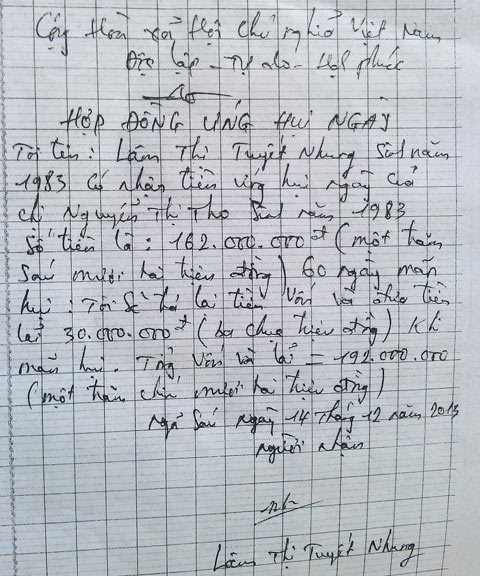 Cộng Hoà xã Hội chủ nghĩa Việt Nam
Độc lập - Tự do - Hạh phúc
HỢP ĐỒNG ỨNG HỤI NGÀY
Tôi tên: Lâm Thị Tuyết Nhung Sinh năm
1983 có nhận tiền ứng hụi ngày của
chị Nguyễn Thị Tho Sinh năm 1983
Số tiền là: 162.000.000đ (một trăm
Sáu mươi hai triệu đồng) 60 ngày mãn
hụi: Tôi Sẽ trả lại tiền Vốn và tiền
lãi 30.000.000đ (ba chục triệu đồng) Khi
mãn hụi. Tổng Vốn và lãi = 192.000.000
(một trăm chín mươi hai triệu đồng)
Ngã Sáu ngày 14 tháng 12 năm 2013
người nhận
Lâm Thị Tuyết Nhung